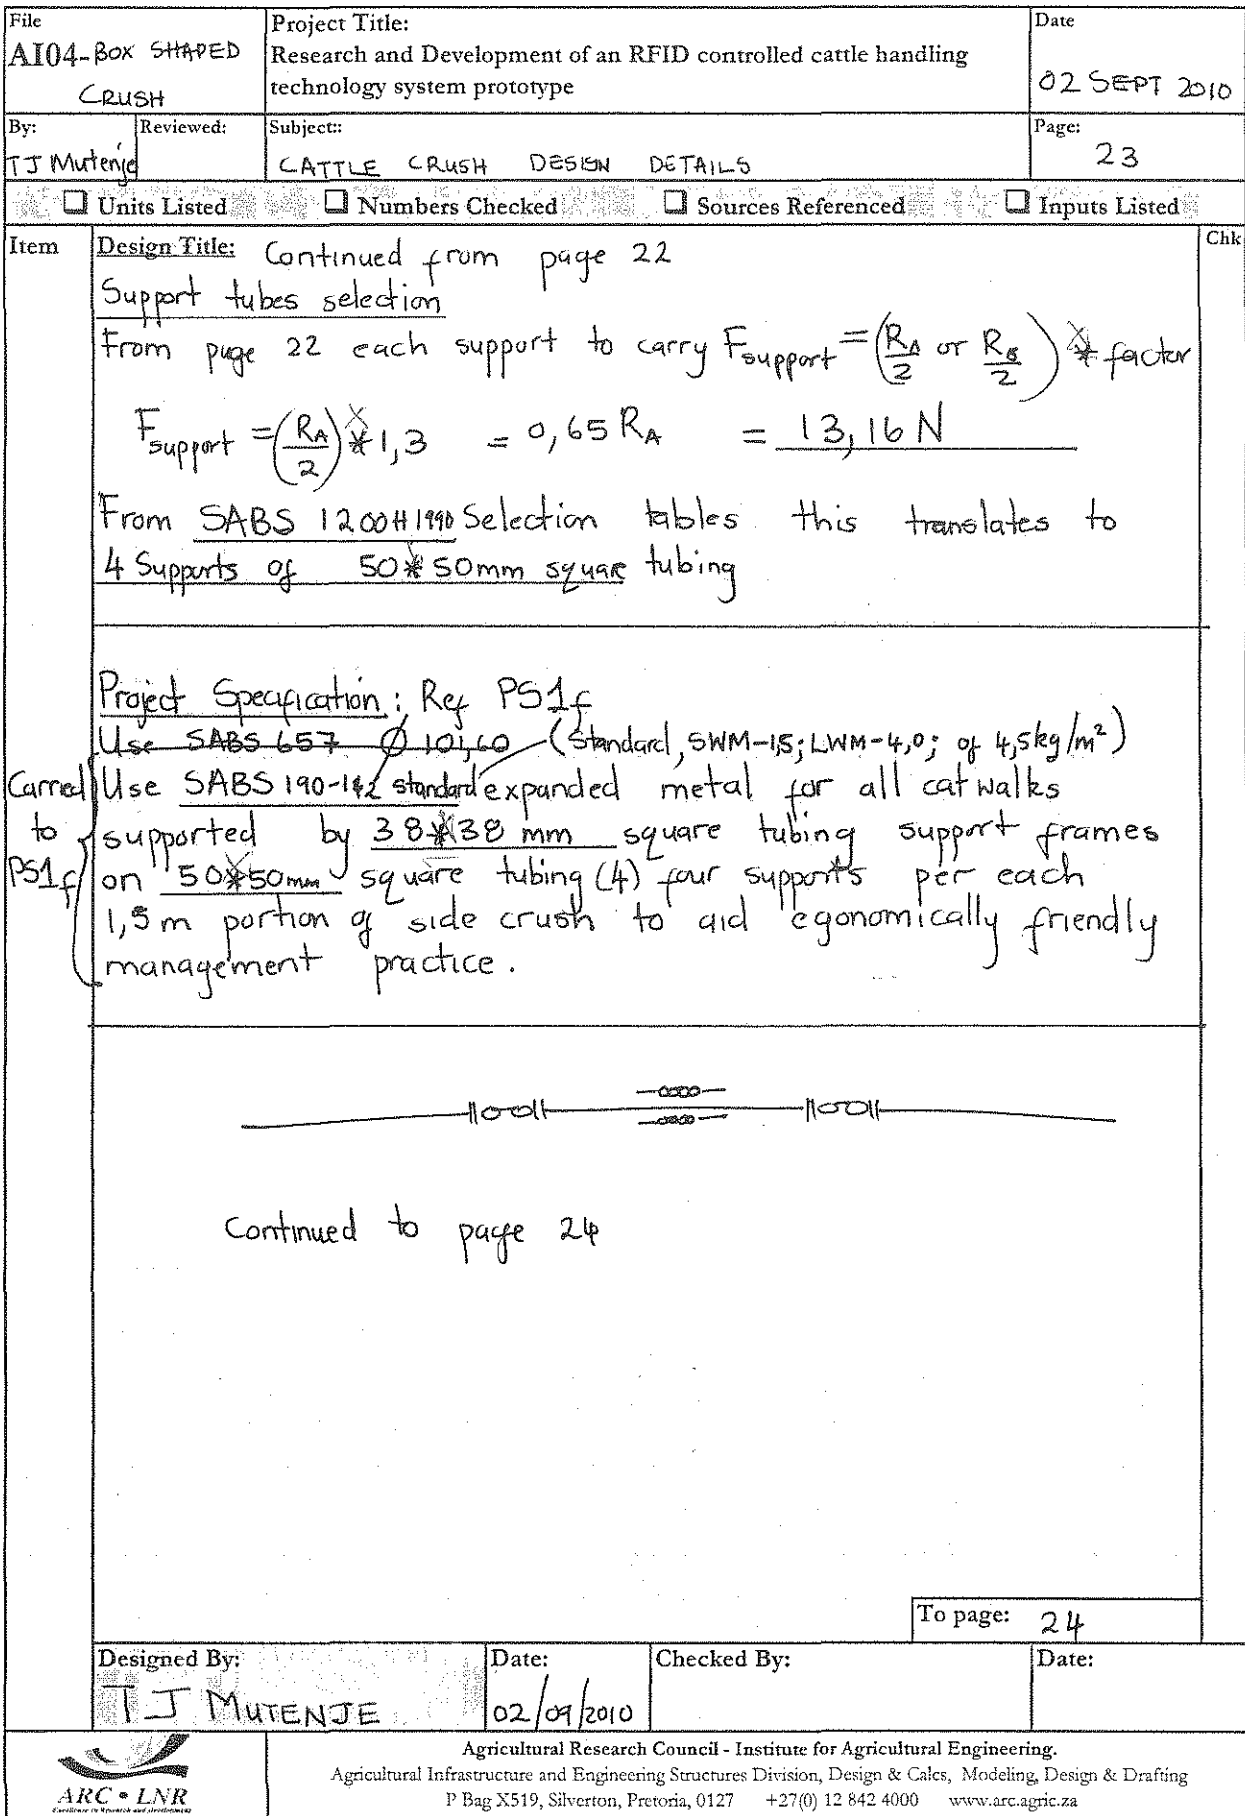 File
AI04-BOX SHAPED
CRUSH
Project Title:
Research and Development of an RFID controlled cattle handling
technology system prototype
Date
02 SEPT 2010
By:
TJ Mutenje
Reviewed:
Subject::
CATTLE CRUSH DESIGN DETAILS
Page:
23
☐ Units Listed ☐ Numbers Checked ☐ Sources Referenced ☐ Inputs Listed
Item
Design Title: Continued from page 22
Chk
Support tubes selection
From page 22 each support to carry F_support = (R_A/2 or R_B/2) × factor
F_support = (R_A/2) × 1,3 = 0,65 R_A = 13,16 N
From SABS 1200H 1990 Selection tables this translates to
4 Supports of 50×50mm square tubing
Project Specification: Ref PS1f
Use SABS 657 Ø 101,60 (standard, SWM-15; LWM-4,0; of 4,5kg/m²)
Carried
to
PS1f
Use SABS 190-1&2 standard expanded metal for all catwalks
supported by 38×38 mm square tubing support frames
on 50×50mm square tubing (4) four supports per each
1,5m portion of side crush to aid egonomically friendly
management practice.
Continued to page 24
To page: 24
Designed By:
T J MUTENJE
Date:
02/09/2010
Checked By:
Date:
ARC • LNR
Excellence in Research and Development
Agricultural Research Council - Institute for Agricultural Engineering.
Agricultural Infrastructure and Engineering Structures Division, Design & Calcs, Modeling, Design & Drafting
P Bag X519, Silverton, Pretoria, 0127 +27(0) 12 842 4000 www.arc.agric.za